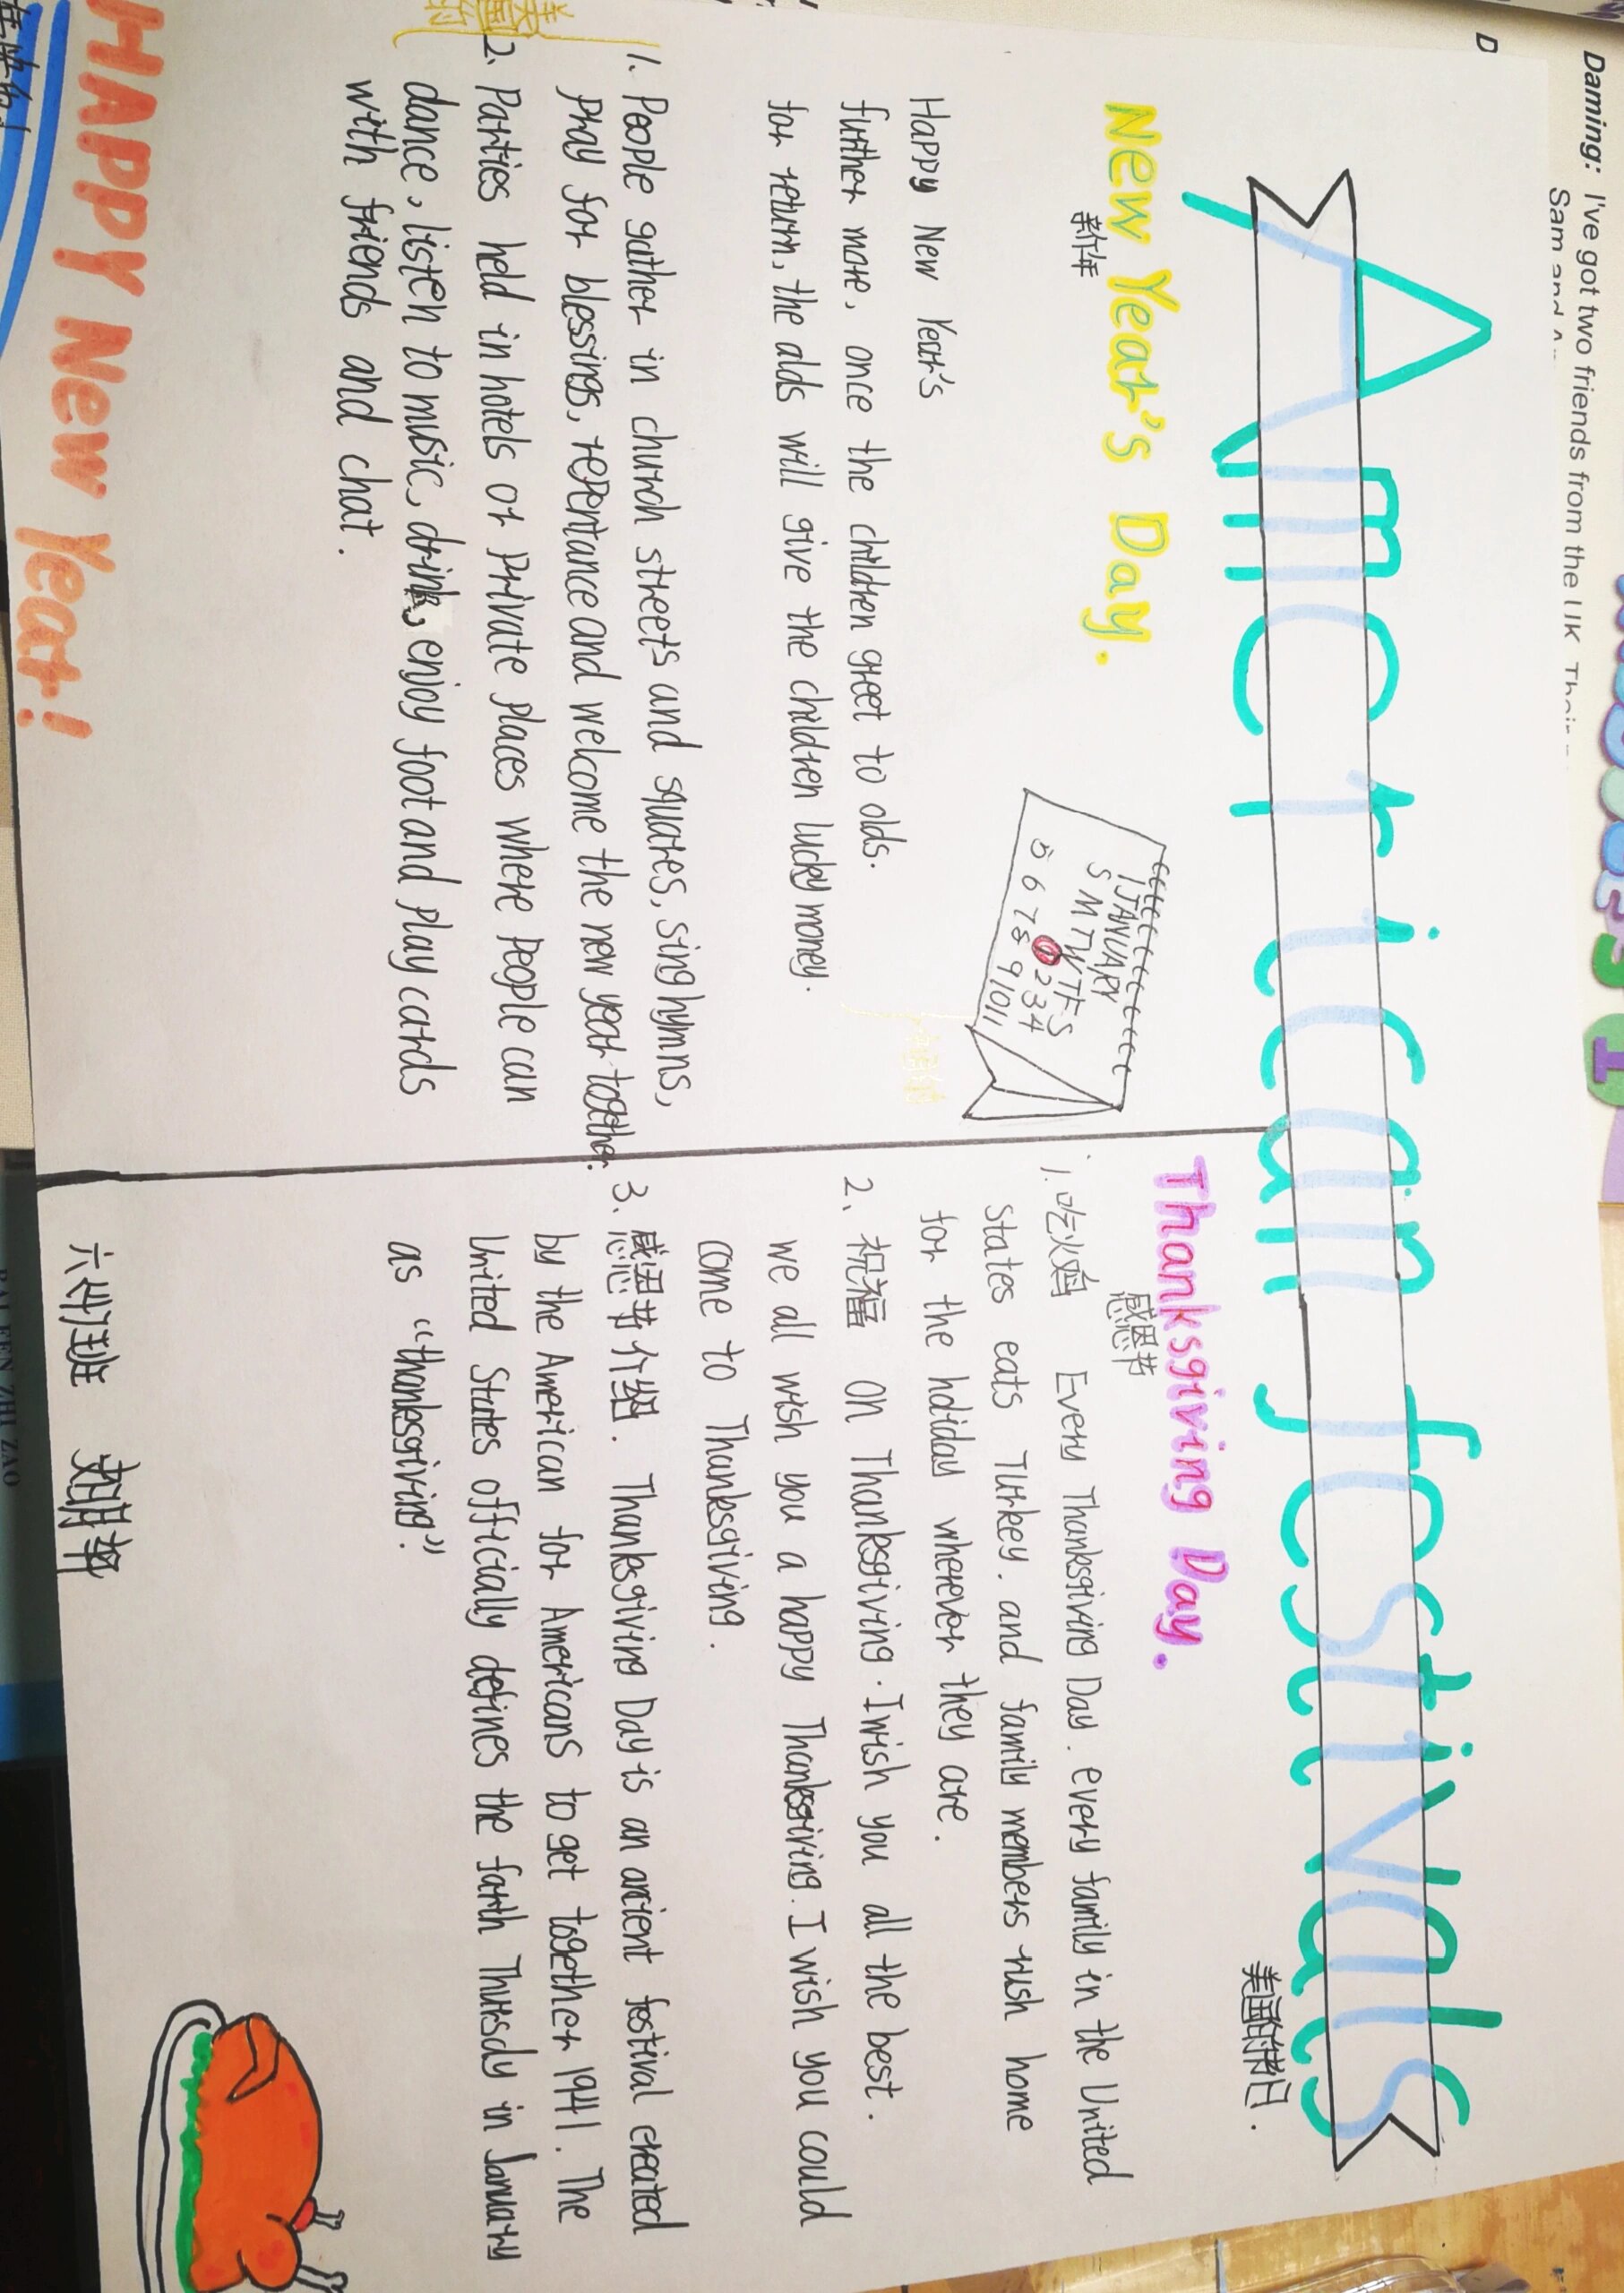 Daming: I've got two friends from the UK. Their
Sam and A
D
American festivals
美国的节日.
New Year's Day.
新年
JANUARY
S M T W T F S
1 2 3 4
5 6 7 8 9 10 11
Happy New Year's
further more, once the children greet to olds.
for return, the olds will give the children lucky money.
美国
1. People gather in church streets and squares, sing hymns,
pray for blessings, repentance and welcome the new year together.
2. Parties held in hotels or private places where people can
dance, listen to music, drink, enjoy foot and play cards
with friends and chat.
HAPPY New Year!
Thanksgiving Day.
感恩节
1. 吃火鸡 Every Thanksgiving Day. every family in the United
states eats Turkey. and family members rush home
for the holiday wherever they are.
2、祝福 On Thanksgiving. I wish you all the best.
we all wish you a happy Thanksgiving. I wish you could
come to Thanksgiving.
3、感恩节介绍. Thanksgiving Day is an ancient festival created
by the American for Americans to get together 1941. The
United States officially defines the forth Thursdy in January
as "thanksgiving".
BAI FEN ZHI ZAO